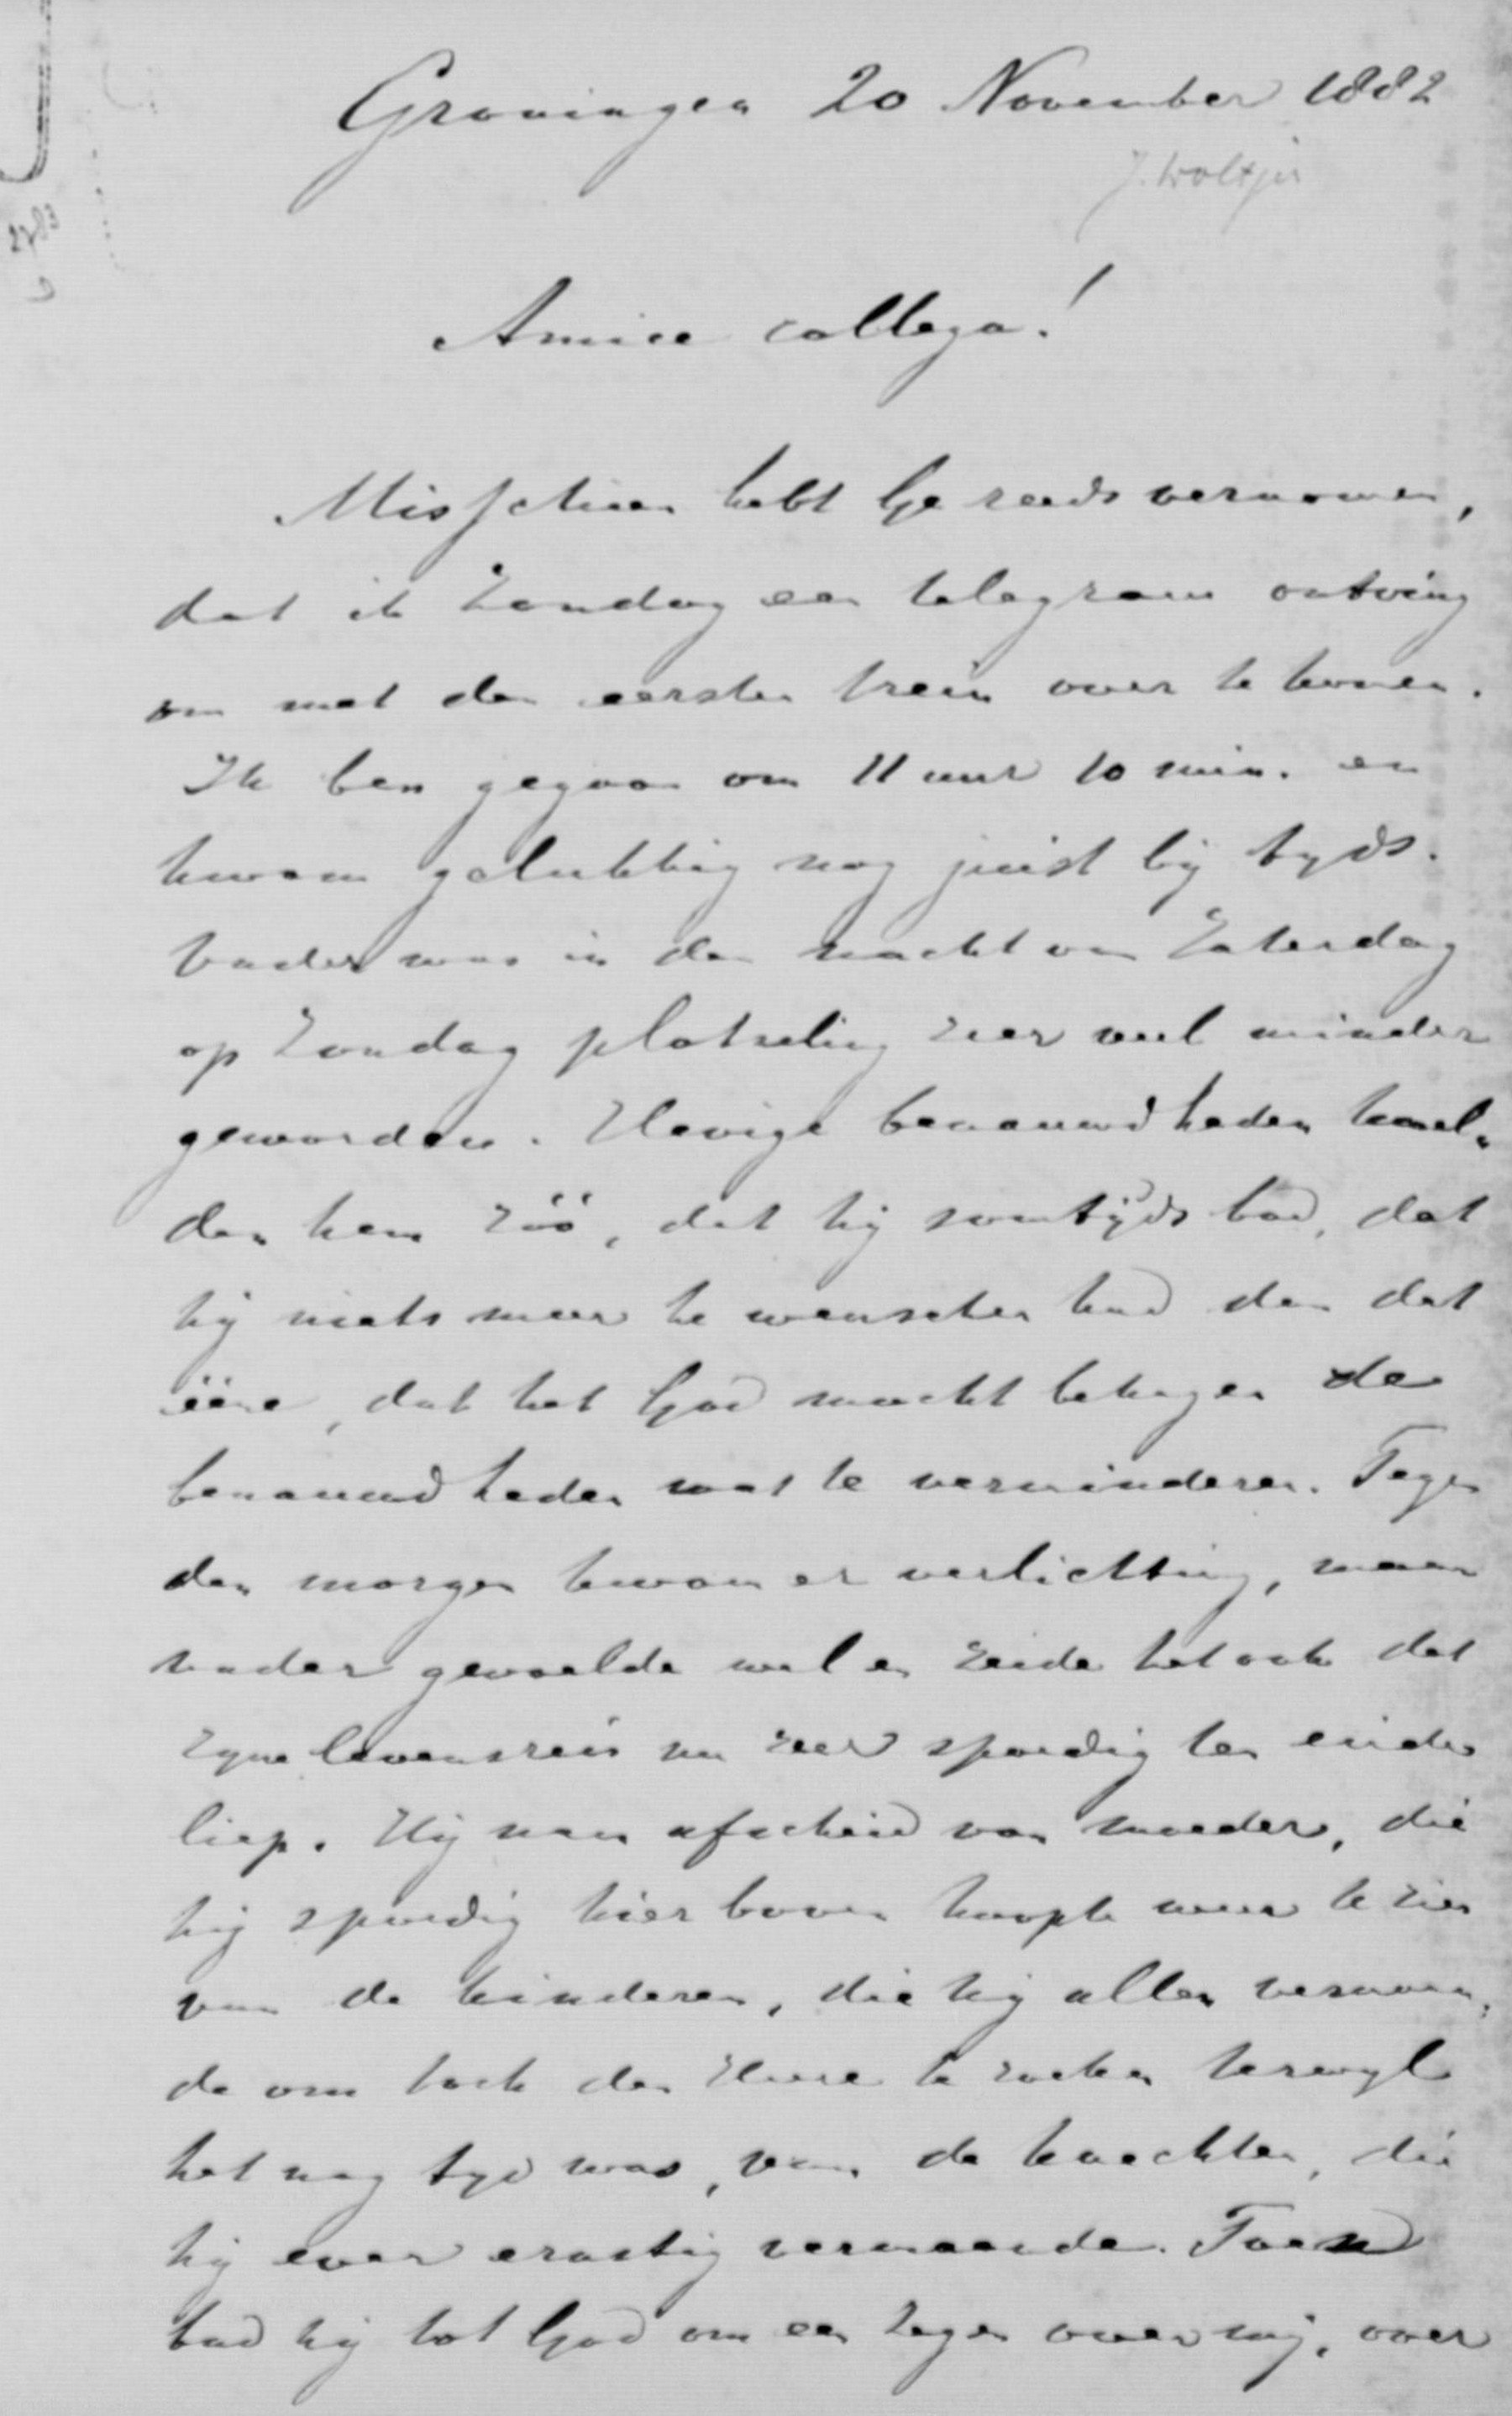 Groningen 20 November 1882
J. Woltjer
Amice collega!
Misschien hebt Ge reeds vernomen,
dat ik Zondag een telegram ontving
om met den eersten trein over te komen.
Ik ben gegaan om 11 uur 10 min. en
kwam gelukkig nog juist bij tyds.
Vader was in den nacht van Zaterdag
op Zondag plotseling zeer veel minder
geworden. Hevige benauwdheden kwel-
den hem zóó, dat hij somtijds bad, dat
hij niets meer te wenschen had dan dat
ééne, dat het God mocht behagen de
benauwdheden wat te verminderen. Tegen
den morgen kwam er verlichting, maar
vader gevoelde wel en zeide het ook dat
zyne levensreis nu zeer spoedig ten einde
liep. Hij nam afscheid van moeder, die
hij spoedig hier boven hoopte weer te zien
van de kinderen, die hij allen vermaan-
de om toch den Heere te zoeken terwyl
het nog tyd was, van de knechten, die
hij even ernstig vermaande. Toen
bad hij tot God om een zegen over mij, over